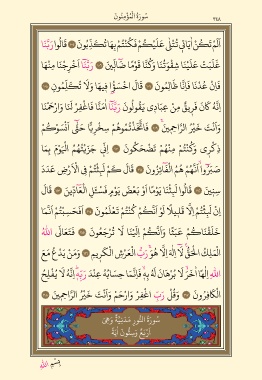 سُورَةُ الْمُؤْمِنُونَ
٣٤٨
اَلَمْ تَكُنْ اٰيَاتِى تُتْلٰى عَلَيْكُمْ فَكُنْتُمْ بِهَا تُكَذِّبُونَ ۝ قَالُوا رَبَّنَا
غَلَبَتْ عَلَيْنَا شِقْوَتُنَا وَكُنَّا قَوْمًا ضَٓالّٖينَ ۝ رَبَّنَٓا اَخْرِجْنَا مِنْهَا
فَاِنْ عُدْنَا فَاِنَّا ظَالِمُونَ ۝ قَالَ اخْسَؤُ۫ا فٖيهَا وَلَا تُكَلِّمُونِ ۝
اِنَّهُ كَانَ فَرٖيقٌ مِنْ عِبَادٖى يَقُولُونَ رَبَّنَٓا اٰمَنَّا فَاغْفِرْ لَنَا وَارْحَمْنَا
وَاَنْتَ خَيْرُ الرَّاحِمٖينَ ۝ فَاتَّخَذْتُمُوهُمْ سِخْرِيًّا حَتّٰٓى اَنْسَوْكُمْ
ذِكْرٖى وَكُنْتُمْ مِنْهُمْ تَضْحَكُونَ ۝ اِنّٖى جَزَيْتُهُمُ الْيَوْمَ بِمَا
صَبَرُٓوا اَنَّهُمْ هُمُ الْفَٓائِزُونَ ۝ قَالَ كَمْ لَبِثْتُمْ فِى الْاَرْضِ عَدَدَ
سِنٖينَ ۝ قَالُوا لَبِثْنَا يَوْمًا اَوْ بَعْضَ يَوْمٍ فَسْـَٔلِ الْعَٓادّٖينَ ۝ قَالَ
اِنْ لَبِثْتُمْ اِلَّا قَلٖيلًا لَوْ اَنَّكُمْ كُنْتُمْ تَعْلَمُونَ ۝ اَفَحَسِبْتُمْ اَنَّمَا
خَلَقْنَاكُمْ عَبَثًا وَاَنَّكُمْ اِلَيْنَا لَا تُرْجَعُونَ ۝ فَتَعَالَى اللّٰهُ
الْمَلِكُ الْحَقُّ لَٓا اِلٰهَ اِلَّا هُوَ رَبُّ الْعَرْشِ الْكَرٖيمِ ۝ وَمَنْ يَدْعُ مَعَ
اللّٰهِ اِلٰهًا اٰخَرَ لَا بُرْهَانَ لَهُ بِهٖ فَاِنَّمَا حِسَابُهُ عِنْدَ رَبِّهٖ اِنَّهُ لَا يُفْلِحُ
الْكَافِرُونَ ۝ وَقُلْ رَبِّ اغْفِرْ وَارْحَمْ وَاَنْتَ خَيْرُ الرَّاحِمٖينَ ۝
سُورَةُ النُّورِ مَدَنِيَّةٌ وَهِىَ
اَرْبَعٌ وَسِتُّونَ اٰيَةً
بِسْمِ اللّٰهِ